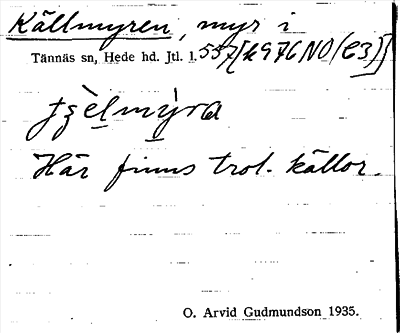 Källmyren, myr i
Tännäs sn, Hede hd. Jtl. l. 557[k976NO(C3)]
tʒèlmỳra
Här finns trol. källor.
O. Arvid Gudmundson 1935.